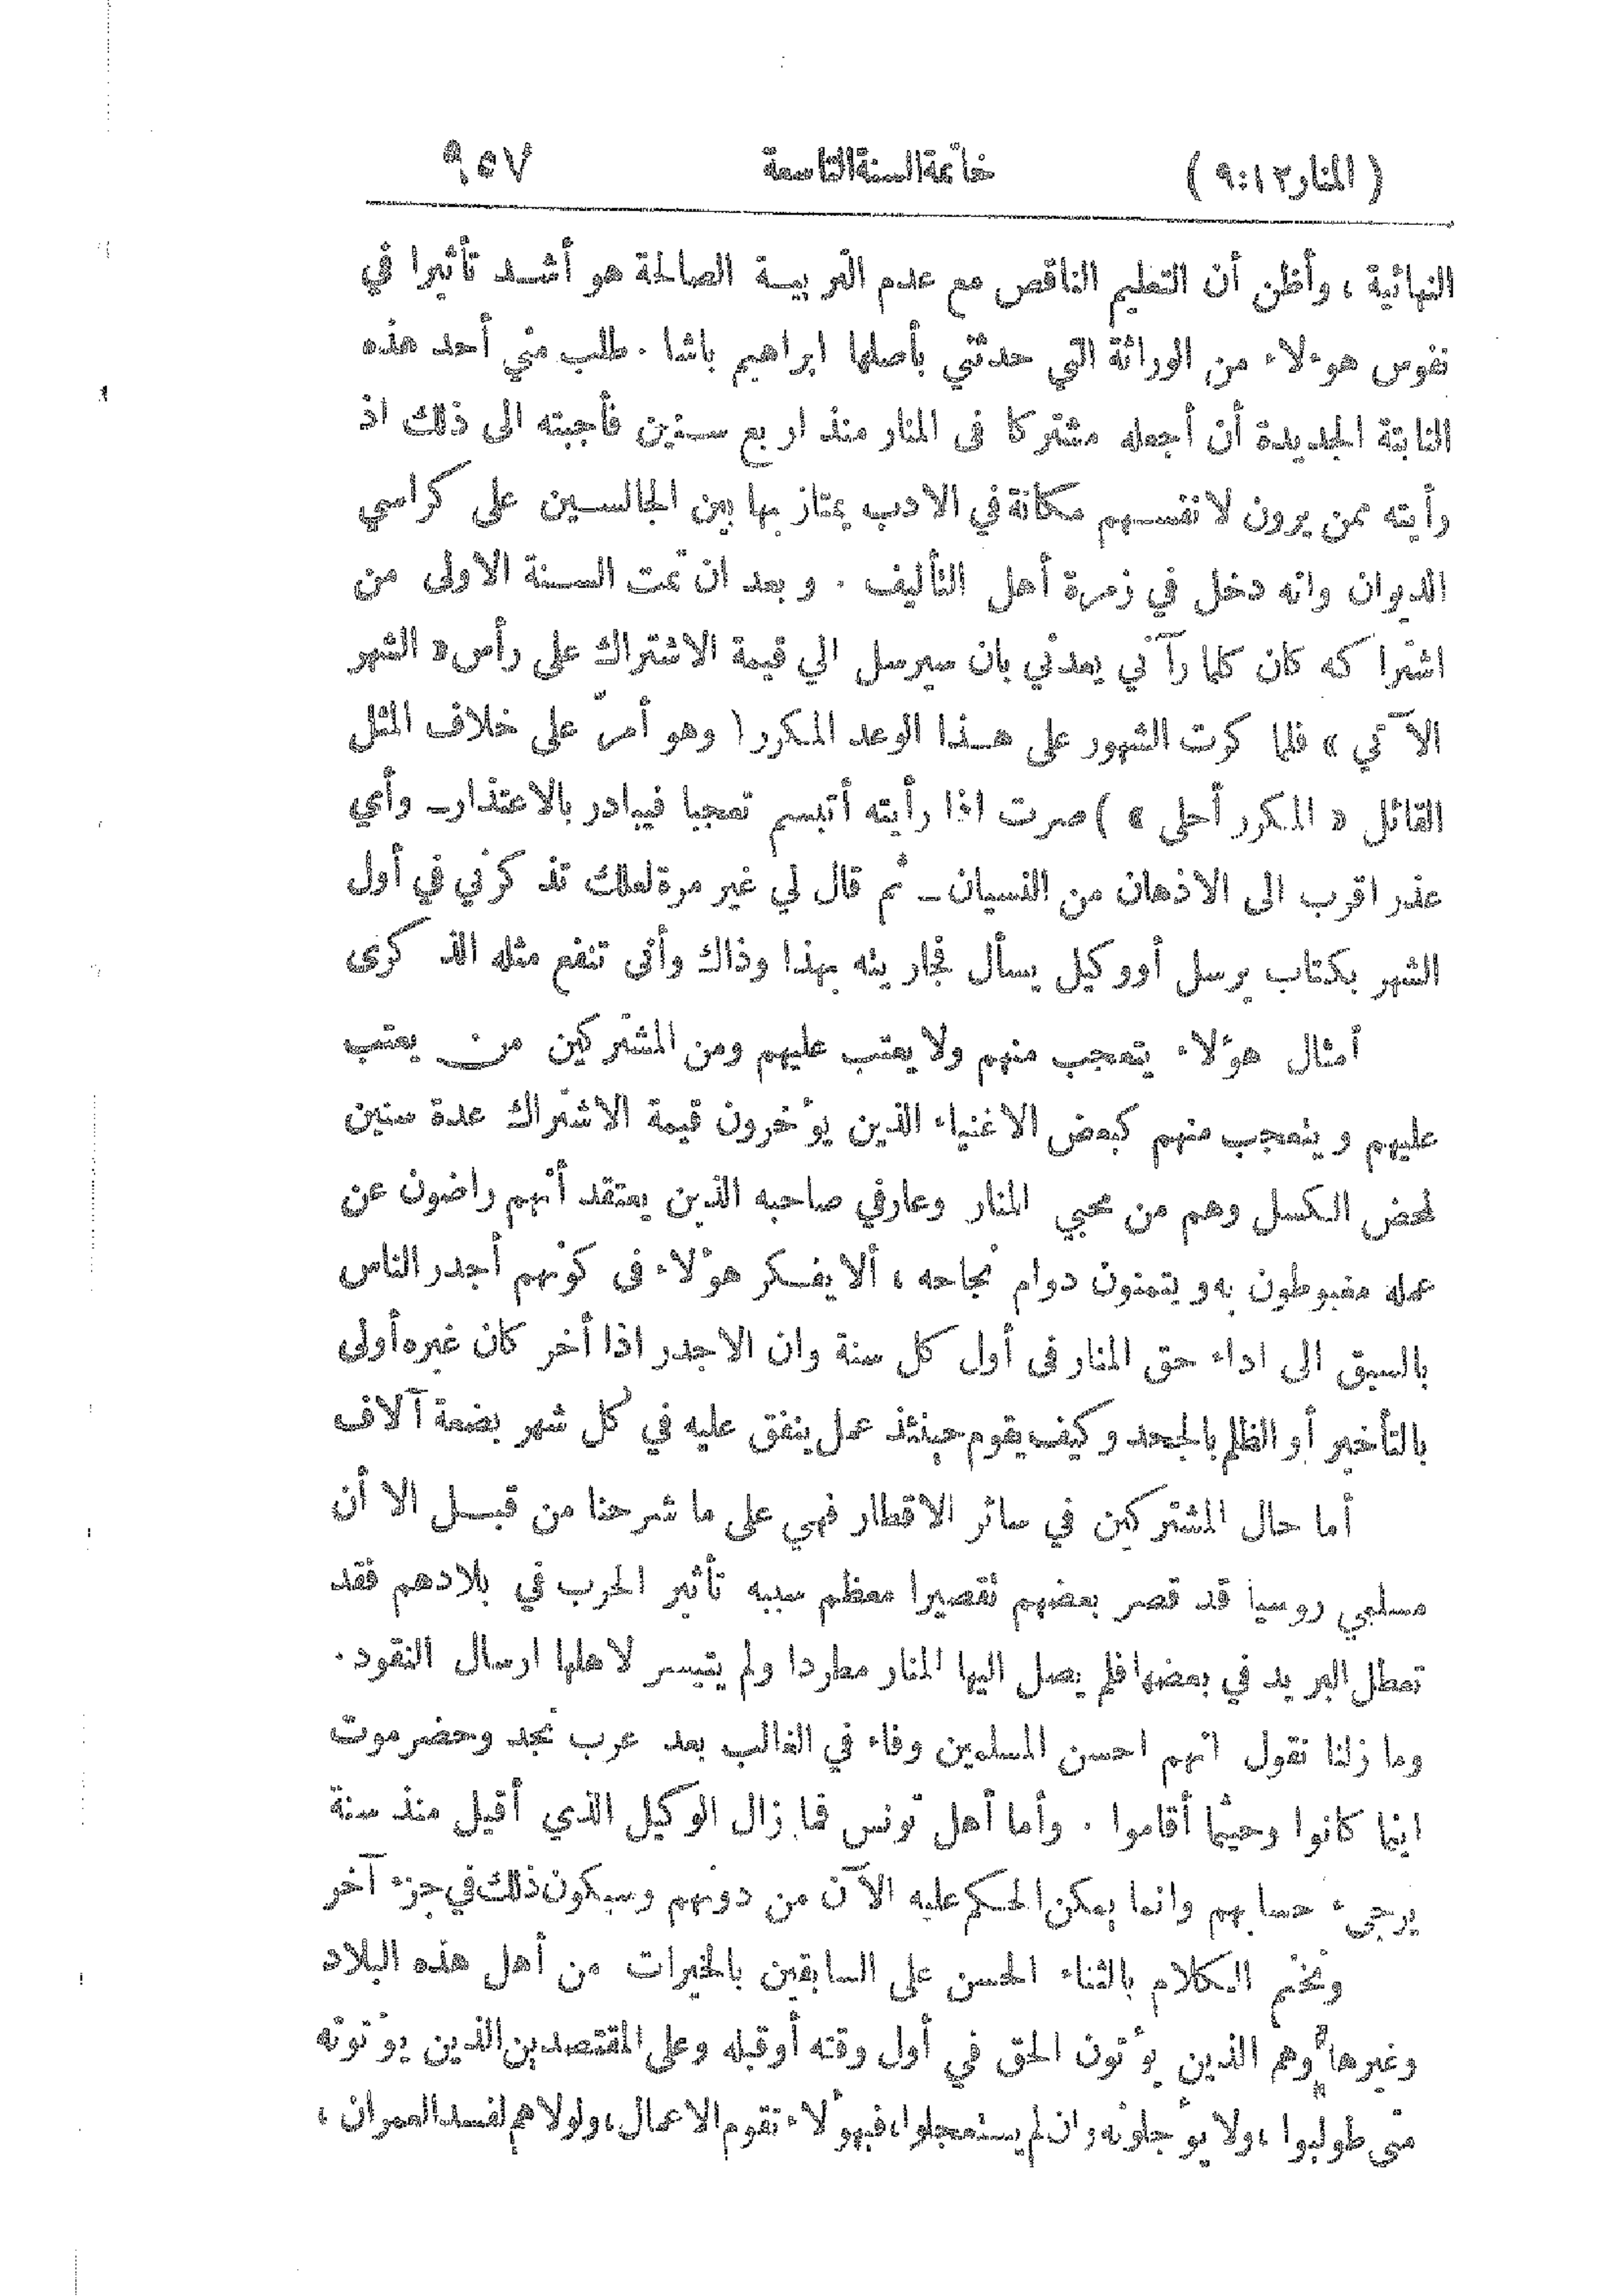 ( المنار ١٢ : ٩ ) خاتمة السنة التاسعة ٩٥٧
النهائية ، وأظن أن التعليم الناقص مع عدم التربيـــة الصالحة هو أشـــد تأثيرا في
نفوس هؤلاء من الوراثة التي حدثني بأصلها ابراهيم باشا . طلب مني أحد هذه
النابتة الجديدة أن أجعله مشتركا فى المنار منذ اربع سـنين فأجبته الى ذلك اذ
رأيته ممن يرون لانفسـهم مكانة في الادب يمتاز بها بين الجالسـين على كراسي
الديوان وانه دخل في زمرة أهل التأليف . وبعد ان تمت السـنة الاولى من
اشتراكه كان كلما رآني يعدني بان سيرسل الي قيمة الاشتراك على رأس « الشهر
الآتي » فلما كرت الشهور على هـذا الوعد المكرر ( وهو أمرّ على خلاف المثل
القائل « المكرر أحلى » ) صرت اذا رأيته أتبسم تعجبا فيبادر بالاعتذار ــ وأي
عذر اقرب الى الاذهان من النسيان ــ ثم قال لي غير مرة لعلك تذكرني في أول
الشهر بكتاب يرسل أووكيل يسأل فجاريته بهذا وذاك وأنى تنفع مثله الذكرى
أمثال هؤلاء يتعجب منهم ولا يعتب عليهم ومن المشتركين من يعتب
عليهم ويتعجب منهم كبعض الاغنياء الذين يؤخرون قيمة الاشتراك عدة سنين
لمحض الكسل وهم من محبي المنار وعارفي صاحبه الذين يعتقد أنهم راضون عن
عمله مغبوطون به ويتمنون دوام نجاحه ، ألا يفـكر هؤلاء فى كونهم أجدر الناس
بالسبق الى اداء حق المنار فى أول كل سنة وان الاجدر اذا أخر كان غيره أولى
بالتأخير أو الظلم بالجحد وكيف يقوم حينئذ عمل ينفق عليه في كل شهر بضعة آلاف
أما حال المشتركين في سائر الاقطار فهي على ما شرحنا من قبـــل الا أن
مسلمي روسيا قد قصر بعضهم تقصيرا معظم سببه تأثير الحرب في بلادهم فقد
تعطل البريد في بعضها فلم يصل اليها المنار مطردا ولم يتيسر لاهلها ارسال النقود .
وما زلنا نقول انهم احسن المسلمين وفاء في الغالب بعد عرب نجد وحضرموت
اينما كانوا وحيثما أقاموا . وأما أهل تونس فما زال الوكيل الذي أقيل منذ سنة
يرجىء حسابهم وانما يمكن الحـكم عليه الآن من دونهم وسيكون ذلك في جزء آخر
ونختم الـكلام بالثناء الحسن على السابقين بالخيرات من أهل هذه البلاد
وغيرها وهم الذين يؤتون الحق في أول وقته أوقبله وعلى المقتصدين الذين يؤتونه
متى طولبوا ، ولا يؤجلونه وان لم يستعجلوا ، فبهؤلاء تقوم الاعمال ، ولولاهم لفسد العمران ،